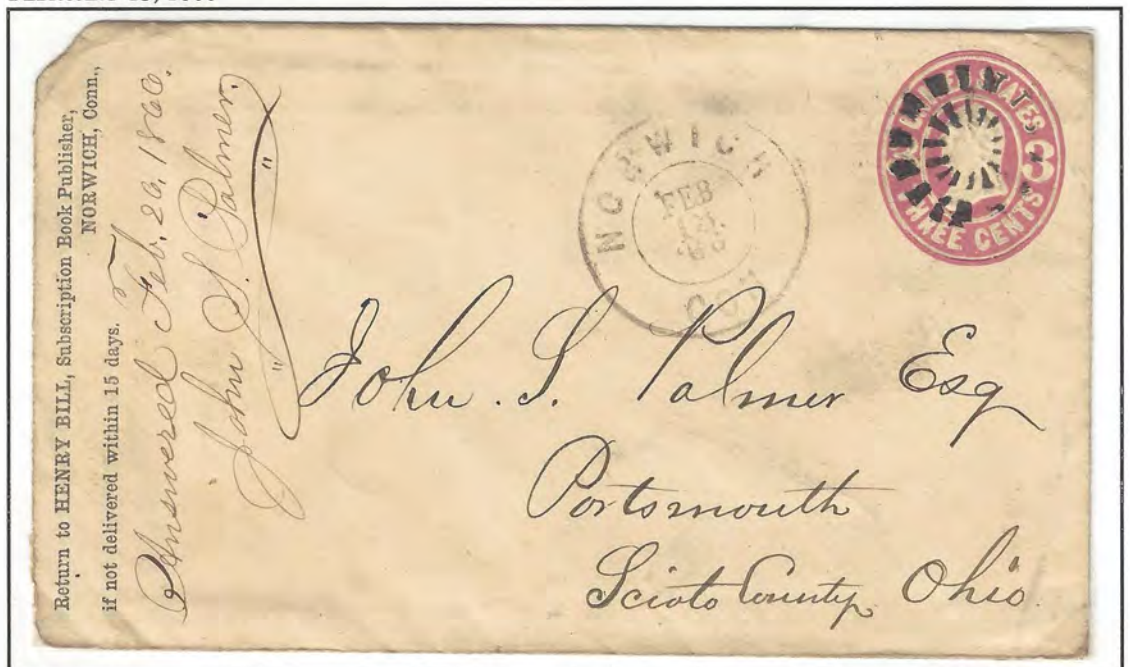 Return to HENRY BILL, Subscription Book Publisher,
NORWICH, Conn.,
if not delivered within 15 days.
Answered Feb. 20, 1866.
John S. Palmer.
NORWICH
FEB
CON
UNITED STATES
3
THREE CENTS
John. S. Palmer Esq
Portsmouth
Scioto County, Ohio.